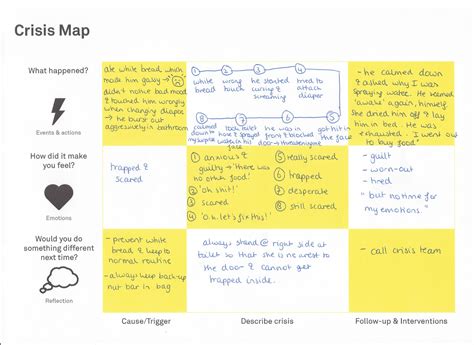 Crisis Map
What happened?
Events & actions
ate white bread which
made him gassy →
didn't notice bad mood
& touched him wrongly
when changing diaper
→ he burst out
aggressively in bathroom
1 2 3 4
white bread
wrong touch
he started crying & screaming
tried to attack diaper
8 7 6 5
calmed down
took toilet
water in his face
he was in front & blocked
door → threatening me
got hit in
the face
- he calmed down
& asked why I was
spraying water. He
"awake" again, himself
She dried him off & lay
him in bed. He was
exhausted. I went out
to buy food
How did it make
you feel?
Emotions
trapped &
scared
1 anxious &
guilty → "there was
no other food"
2 "oh shit!"
3 scared
4 "O.k. let's fix this!"
5 really scared
6 trapped
7 desperate
8 still scared
- guilt
- worn-out
- tired
"but no time for
my emotions"
Would you do
something different
next time?
Reflection
- prevent white
bread & keep to
normal routine
- always keep back-up
nut bar in bag
always stand @ right side at
toilet so that she is nearest to
the door & cannot get
trapped inside.
- call crisis team
Cause/Trigger
Describe crisis
Follow-up & Interventions